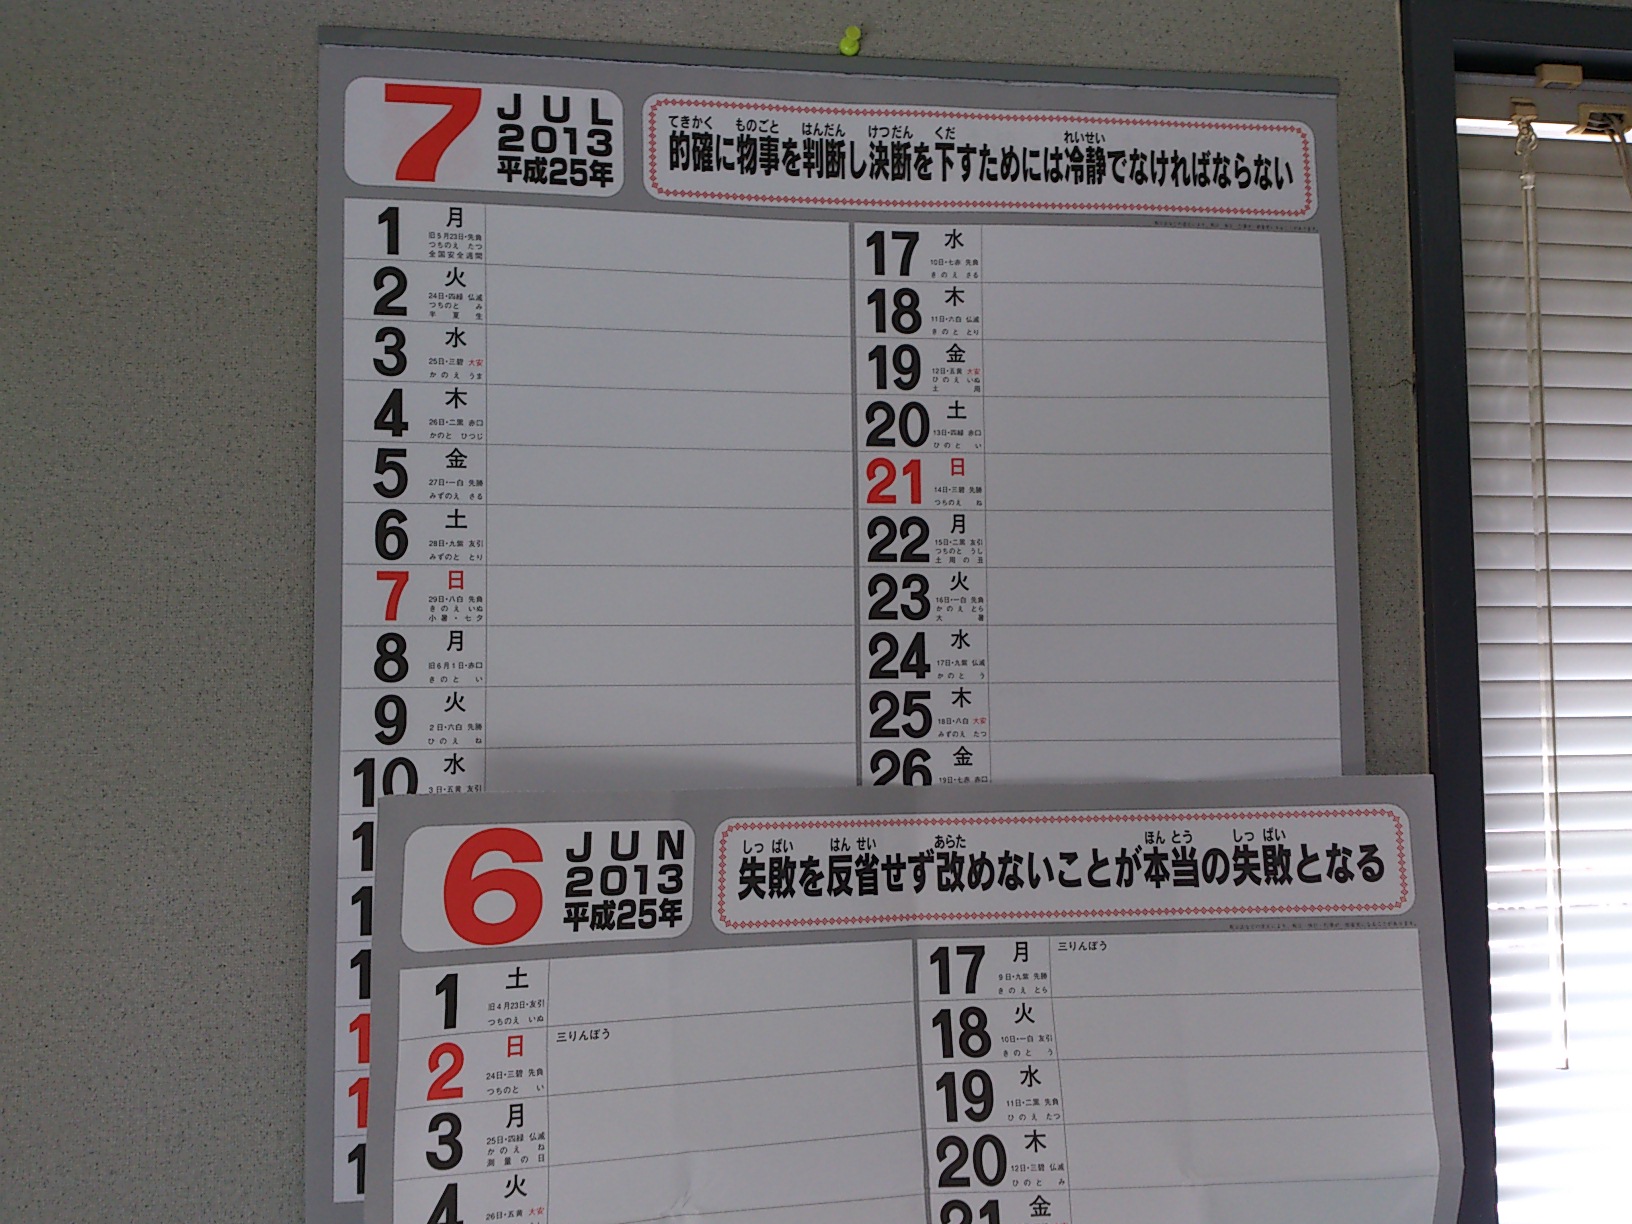 7
JUL
2013
平成25年
てきかく ものごと はんだん けつだん くだ れいせい
的確に物事を判断し決断を下すためには冷静でなければならない
1 月
旧5月23日・先負
つちのえ たつ
全国安全週間
2 火
24日・四緑 仏滅
つちのと み
半夏生
3 水
25日・三碧 大安
かのえ うま
4 木
26日・二黒 赤口
かのと ひつじ
5 金
27日・一白 先勝
みずのえ さる
6 土
28日・九紫 友引
みずのと とり
7 日
29日・八白 先負
きのえ いぬ
小暑・七夕
8 月
旧6月1日・赤口
きのと い
9 火
2日・六白 先勝
ひのえ ね
10 水
3日・五黄 友引
17 水
10日・七赤 先負
きのえ さる
18 木
11日・六白 仏滅
きのと とり
19 金
12日・五黄 大安
ひのえ いぬ
土用
20 土
13日・四緑 赤口
ひのと い
21 日
14日・三碧 先勝
つちのえ ね
22 月
15日・二黒 友引
つちのと うし
土用の丑
23 火
16日・一白 先負
かのえ とら
大暑
24 水
17日・九紫 仏滅
かのと う
25 木
18日・八白 大安
みずのえ たつ
26 金
19日・七赤 赤口
6
JUN
2013
平成25年
しっぱい はんせい あらた ほんとう しっぱい
失敗を反省せず改めないことが本当の失敗となる
1 土
旧4月23日・友引
つちのえ いぬ
2 日 三りんぼう
24日・三碧 先負
つちのと い
3 月
25日・四緑 仏滅
かのえ ね
測量の日
4 火
26日・五黄 大安
17 月 三りんぼう
9日・九紫 先勝
きのえ とら
18 火
10日・一白 友引
きのと う
19 水
11日・二黒 先負
ひのえ たつ
20 木
12日・三碧 仏滅
ひのと み
21 金